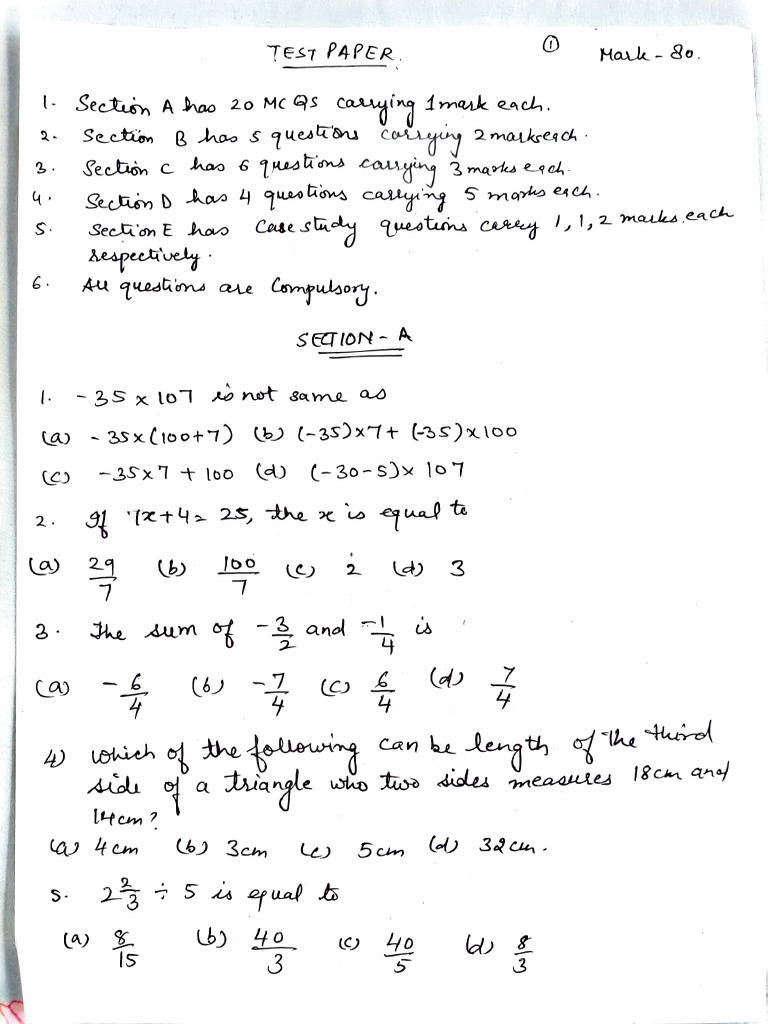 ①
TEST PAPER. Mark - 80.
1. Section A has 20 MCQS carrying 1 mark each.
2. Section B has 5 questions carrying 2 marks each.
3. Section C has 6 questions carrying 3 marks each.
4. Section D has 4 questions carrying 5 marks each.
5. Section E has Case study questions carry 1, 1, 2 marks each
respectively.
6. All questions are Compulsory.
SECTION - A
1. -35 x 107 is not same as
(a) -35x(100+7) (b) (-35)x7+ (-35)x100
(c) -35x7 + 100 (d) (-30-5)x 107
2. If 7x+4= 25, the x is equal to
(a) 29/7 (b) 100/7 (c) 2 (d) 3
3. The sum of -3/2 and -1/4 is
(a) -6/4 (b) -7/4 (c) 6/4 (d) 7/4
4) which of the following can be length of the third
side of a triangle who two sides measures 18cm and
14cm?
(a) 4cm (b) 3cm (c) 5cm (d) 32cm.
5. 2 2/3 ÷ 5 is equal to
(a) 8/15 (b) 40/3 (c) 40/5 (d) 8/3